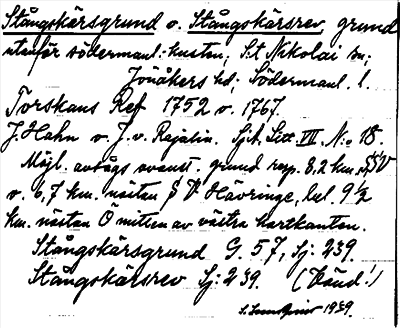 Stångskärsgrund o. Stångskärsrev grund
utanför södermanl. kusten; S:t Nikolai sn;
Jönåkers hd; Södermanl. l.
Torskans Ref 1752 o. 1767.
J. Hahn o. J. v. Rajalin. Sjk. Litt. VII. No 18.
Möjl. avsågs ovanst. grund resp. 8,2 km. SSV
o. 6,7 km. nästan S V Hävringe, bel. 9 1/2
km. nästan Ö mitten av västra kartkanten.
Stångskärsgrund G. 57, Sj. 239.
Stångskärsrev Sj. 239. (Bänd!)
1939.